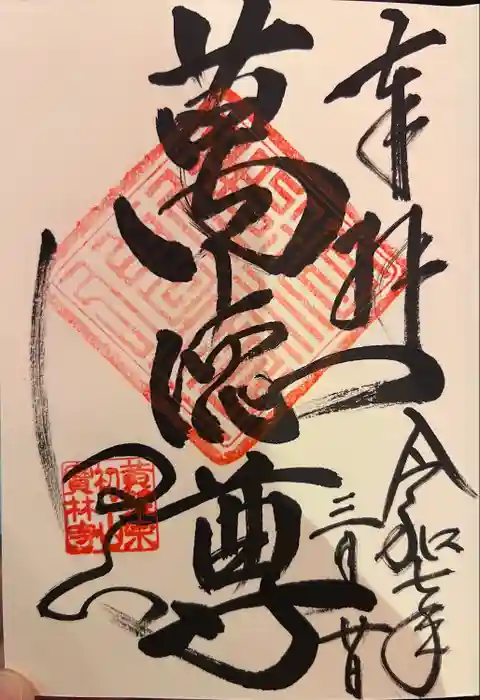 奉拝
令和七年
三月廿日
萬德尊
黄檗
初山
寳林寺